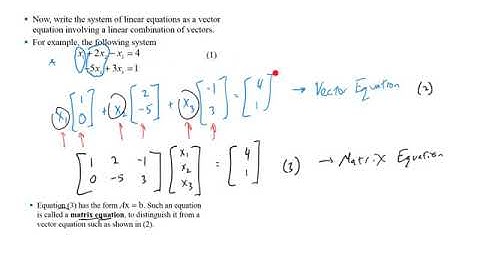 • Now, write the system of linear equations as a vector
equation involving a linear combination of vectors.
• For example, the following system
x₁ + 2x₂ − x₃ = 4 (1)
−5x₂ + 3x₃ = 1
x₁ [1 0] + x₂ [2 -5] + x₃ [-1 3] = [4 1] → Vector Equation (2)
[1 2 -1 0 -5 3] [x₁ x₂ x₃] = [4 1] (3) → Matrix Equation
• Equation (3) has the form Ax = b. Such an equation
is called a matrix equation, to distinguish it from a
vector equation such as shown in (2).